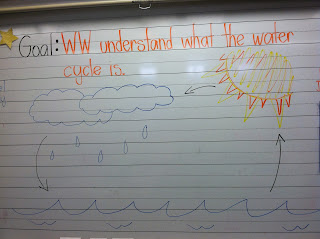 Goal: WW understand what the water
cycle is.